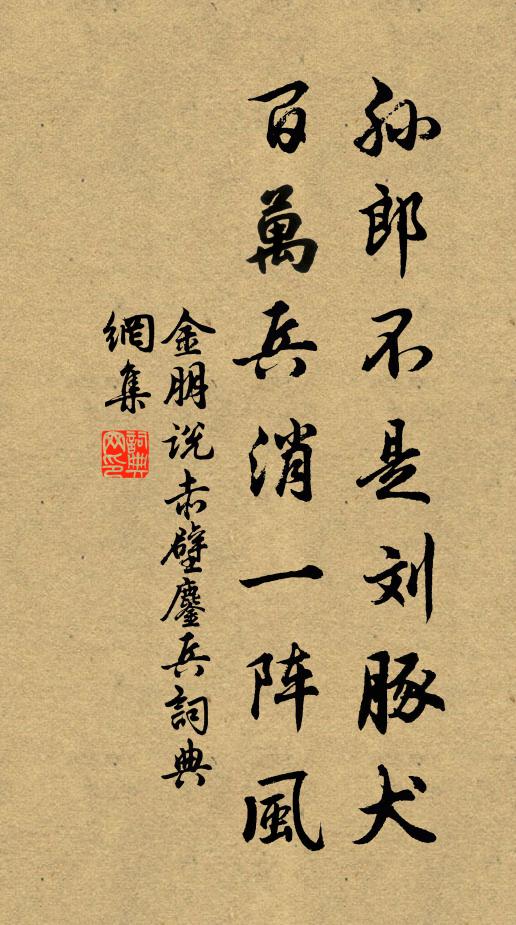 孙郎不是刘豚犬
百萬兵消一阵風
金朋説赤壁鏖兵詞典
網集
詞典
网印